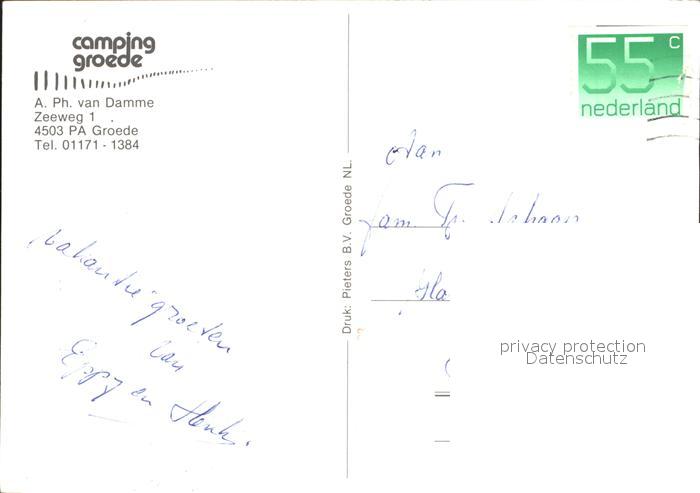 camping
groede
A. Ph. van Damme
Zeeweg 1
4503 PA Groede
Tel. 01171 - 1384
vakantie groeten
van
Eppy en Henk.
Druk: Pieters B.V. Groede NL.
55 c
nederland
Aan
fam.
privacy protection
Datenschutz